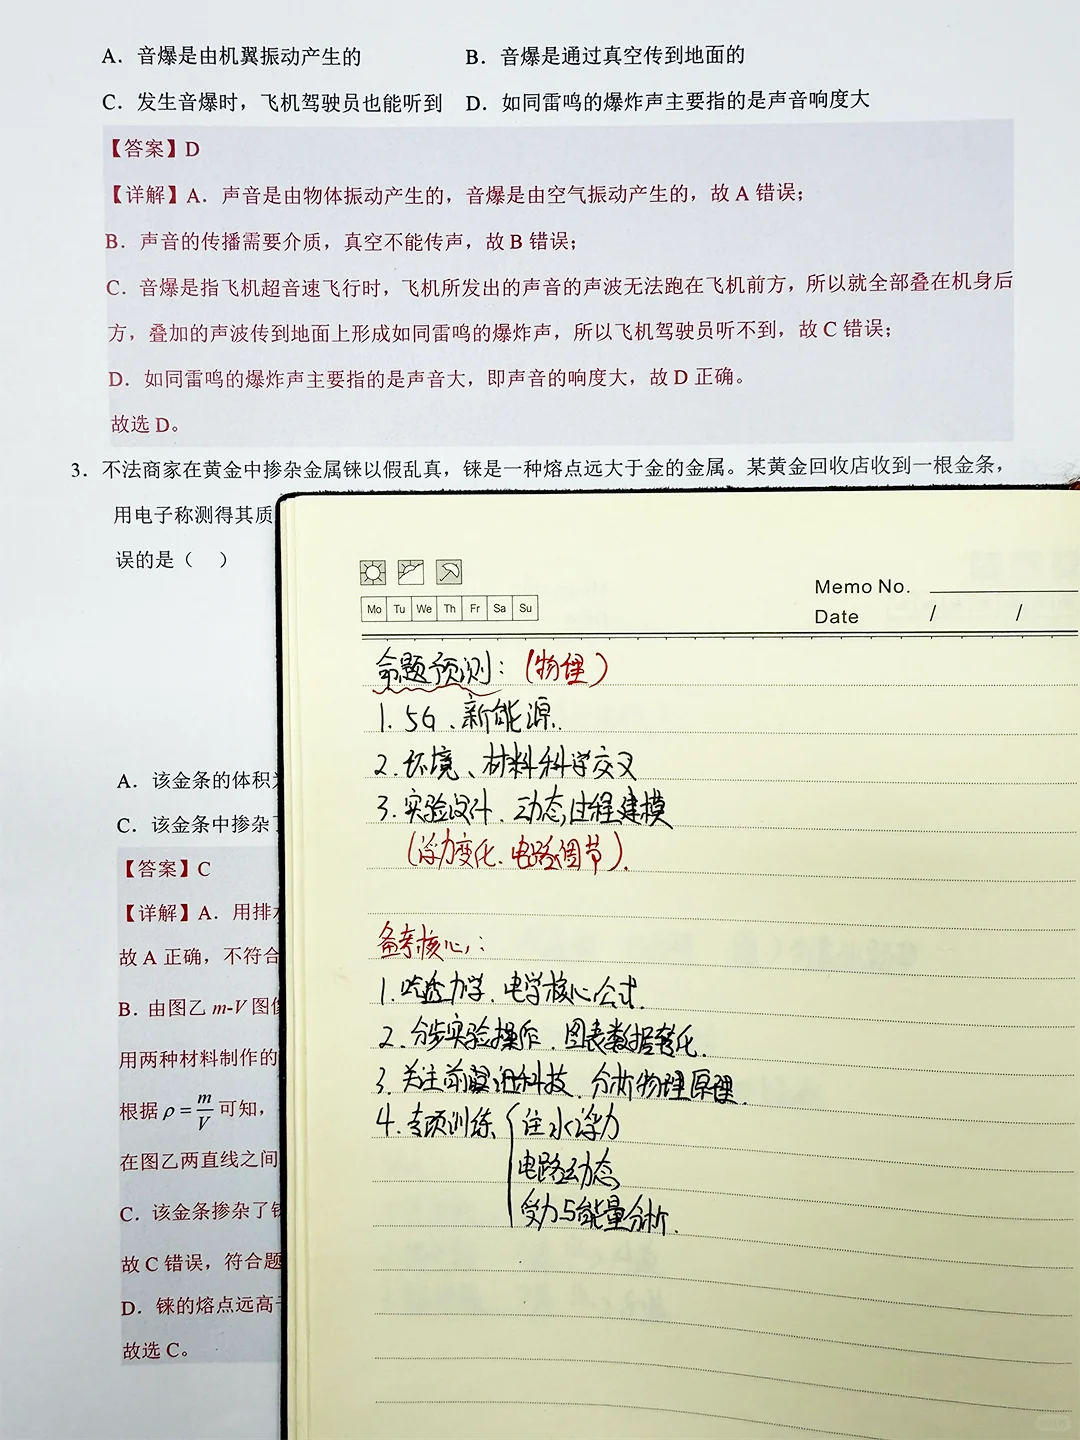 A．音爆是由机翼振动产生的 B．音爆是通过真空传到地面的
C．发生音爆时，飞机驾驶员也能听到 D．如同雷鸣的爆炸声主要指的是声音响度大
【答案】D
【详解】A．声音是由物体振动产生的，音爆是由空气振动产生的，故 A 错误；
B．声音的传播需要介质，真空不能传声，故 B 错误；
C．音爆是指飞机超音速飞行时，飞机所发出的声音的声波无法跑在飞机前方，所以就全部叠在机身后
方，叠加的声波传到地面上形成如同雷鸣的爆炸声，所以飞机驾驶员听不到，故 C 错误；
D．如同雷鸣的爆炸声主要指的是声音大，即声音的响度大，故 D 正确。
故选 D。
3．不法商家在黄金中掺杂金属铼以假乱真，铼是一种熔点远大于金的金属。某黄金回收店收到一根金条，
用电子称测得其质
误的是（ ）
A．该金条的体积
C．该金条中掺杂
【答案】C
【详解】A．用排
故 A 正确，不符合
B．由图乙 m-V 图
用两种材料制作的
根据 ρ = m/V 可知，
在图乙两直线之间
C．该金条掺杂了
故 C 错误，符合题
D．铼的熔点远高
故选 C。
Memo No.
Mo Tu We Th Fr Sa Su
Date / /
命题预测：(物理)
1. 5G、新能源.
2. 环境、材料科学交叉
3. 实验设计、动态过程建模
(浮力变化、电路调节).
备考核心：
1. 吃透力学、电学核心公式.
2. 分步实验操作、图表数据转化.
3. 关注前沿科技、分析物理原理.
4. 专项训练 { 注水浮力
电路动态
受力与能量分析.